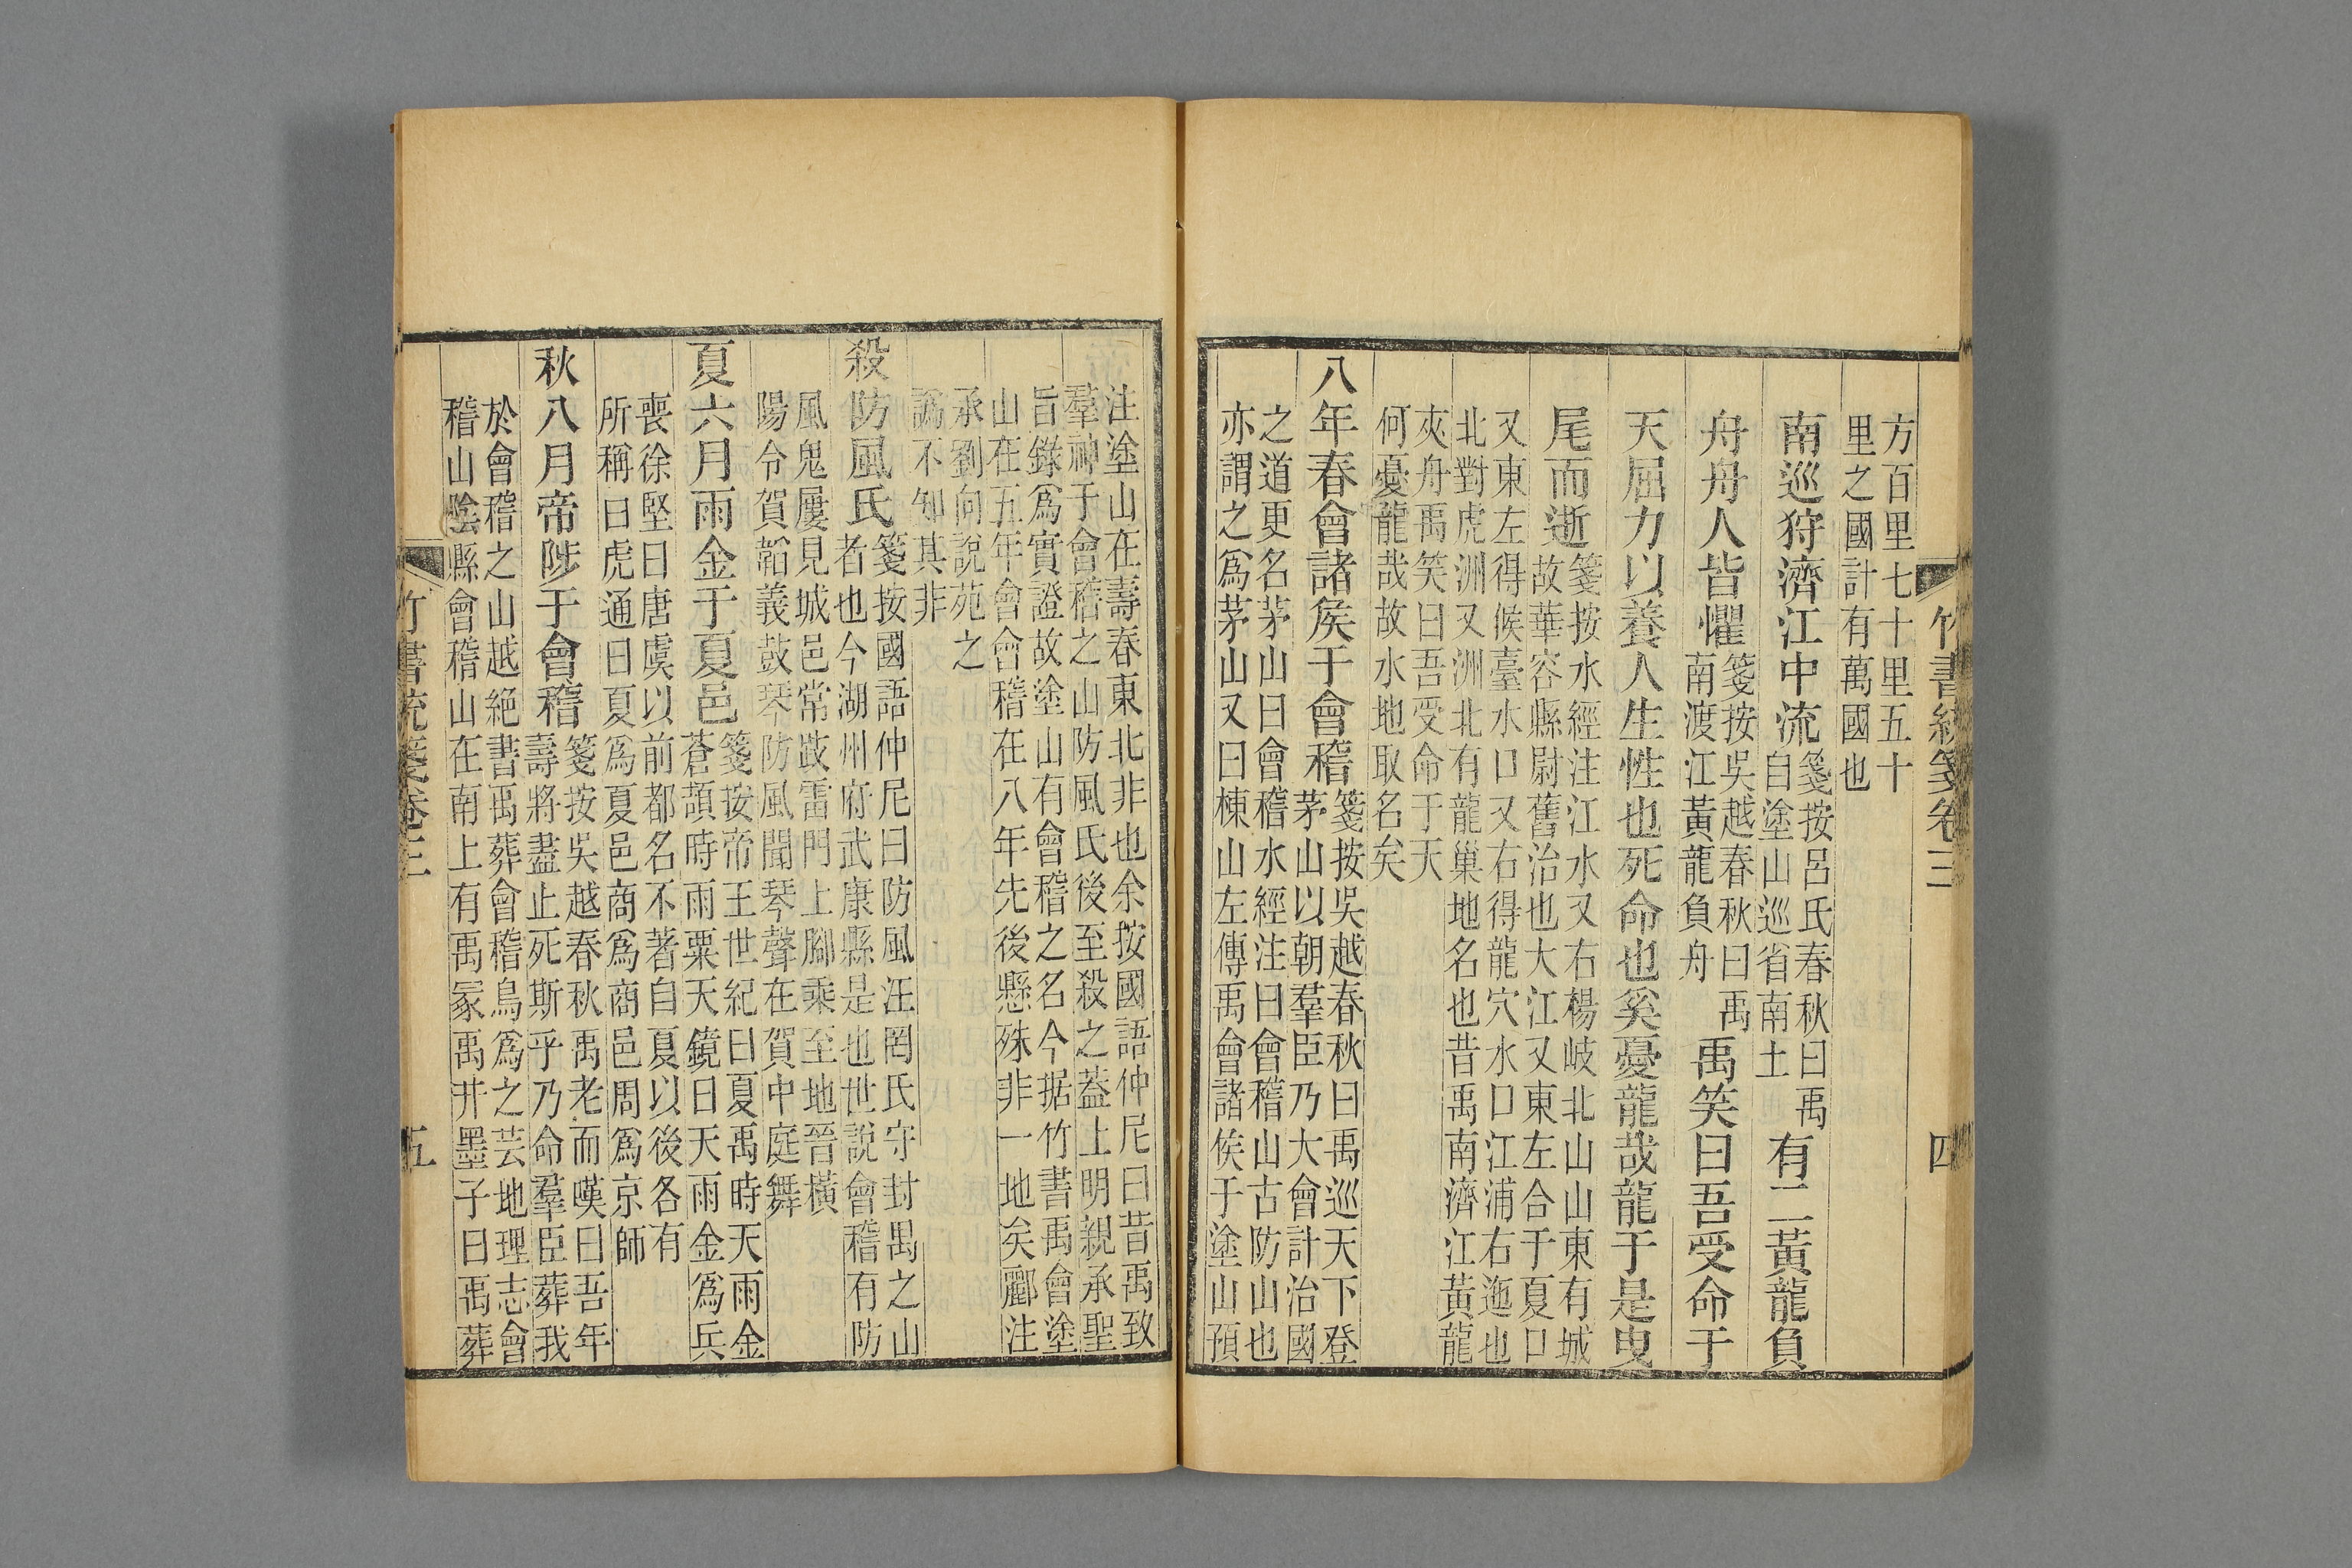 竹書統箋卷三
四
方百里七十里五十
里之國計有萬國也
南巡狩濟江中流
箋按呂氏春秋曰禹
自塗山巡省南土
有二黃龍負
舟舟人皆懼
箋按吳越春秋曰禹
南渡江黃龍負舟
禹笑曰吾受命于
天屈力以養人生性也死命也奚憂龍哉龍于是曳
尾而逝
箋按水經注江水又右楊岐北山山東有城
故華容縣尉舊治也大江又東左合于夏口
又東左得候臺水口又右得龍穴水口江浦右迤也
北對虎洲又洲北有龍巢地名也昔禹南濟江黃龍
夾舟禹笑曰吾受命于天
何憂龍哉故水地取名矣
八年春會諸侯于會稽
箋按吳越春秋曰禹巡天下登
茅山以朝羣臣乃大會計治國
之道更名茅山曰會稽水經注曰會稽山古防山也
亦謂之爲茅山又曰棟山左傳禹會諸侯于塗山預
注塗山在壽春東北非也余按國語仲尼曰昔禹致
羣神于會稽之山防風氏後至殺之蓋上明親承聖
旨錄爲實證故塗山有會稽之名今据竹書禹會塗
山在五年會會稽在八年先後懸殊非一地矣酈注
承劉向說苑之
譌不知其非
殺防風氏
箋按國語仲尼曰防風汪罔氏守封禺之山
者也今湖州府武康縣是也世說會稽有防
風鬼屢見城邑常跂雷門上腳乘至地晉橫
陽令賀韜義鼓琴防風聞琴聲在賀中庭舞
夏六月雨金于夏邑
箋按帝王世紀曰夏禹時天雨金
蒼頡時雨粟天鏡曰天雨金爲兵
喪徐堅曰唐虞以前都名不著自夏以後各有
所稱曰虎通曰夏爲夏邑商爲商邑周爲京師
秋八月帝陟于會稽
箋按吳越春秋禹老而嘆曰吾年
壽將盡止死斯乎乃命羣臣葬我
於會稽之山越絕書禹葬會稽鳥爲之芸地理志會
稽山陰縣會稽山在南上有禹冢禹井墨子曰禹葬
竹書統箋卷三
五